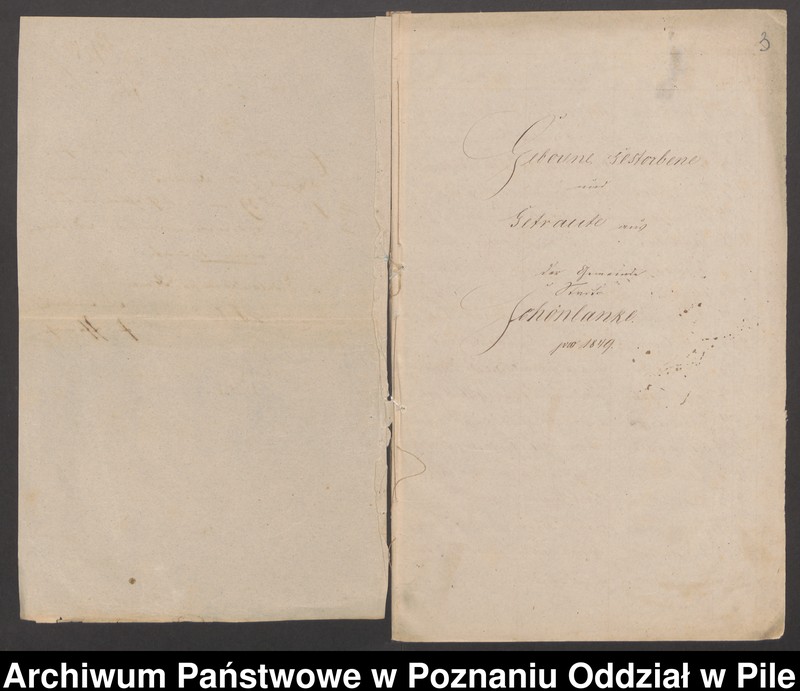 3
Geborene Gestorbene
und
Getraute aus
der Gemeinde
Schönlanke.
pro 1849.
Archiwum Państwowe w Poznaniu Oddział w Pile